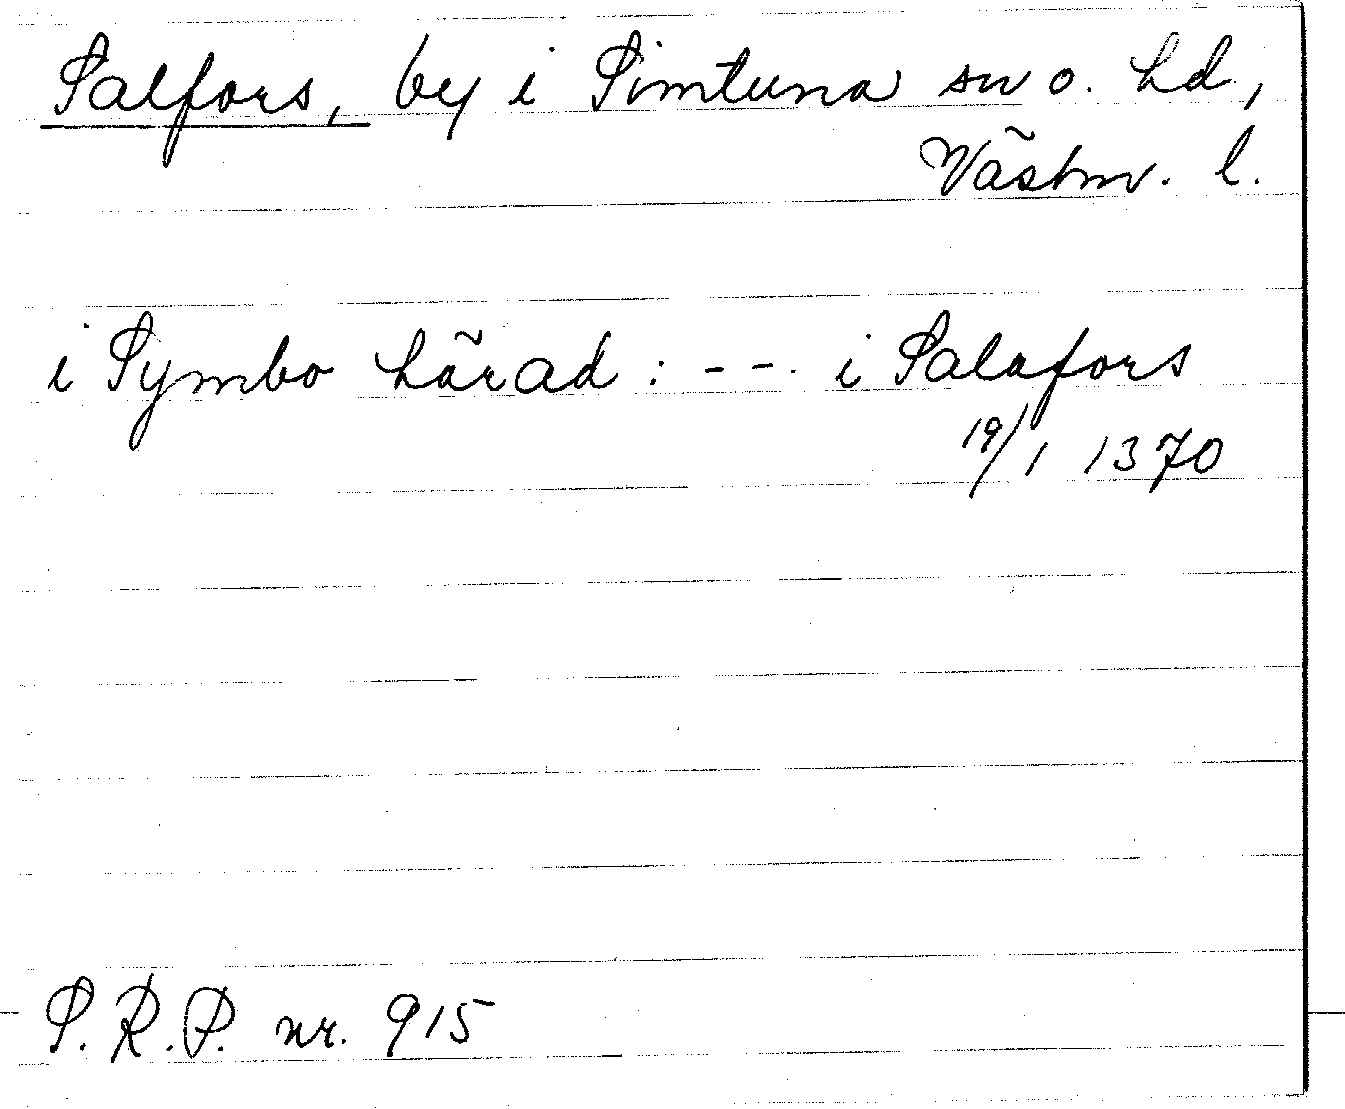 Salfors, by i Simtuna sn o. hd,
Västm. l.
i Symbo härad : - - . i Salafors
19/1 1370
S.R.P. nr. 915